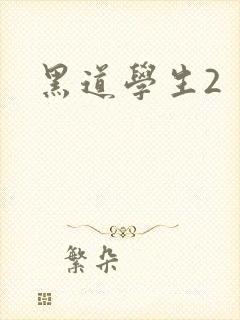 黑道學生2
繁朵